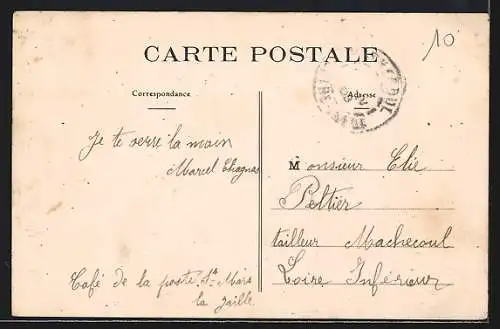 10
CARTE POSTALE
Correspondance
Adresse
Je te serre la main
Marcel
Monsieur Elie
Peltier
tailleur Machecoul
Loire Inférieur
Café de la poste St Mars
la Jaille